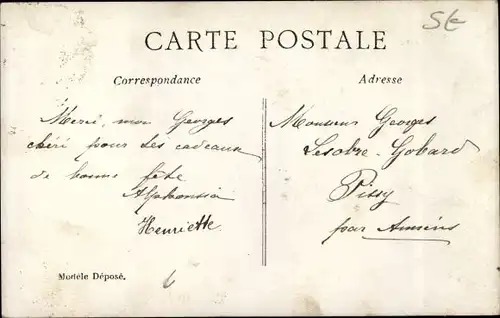 CARTE POSTALE
Correspondance
Merci, mon Georges
chéri pour tes cadeaux
de bonne fête
Henriette
Modèle Déposé.
Adresse
Monsieur Georges
Lesobre-Gobard
Pissy
par Amiens